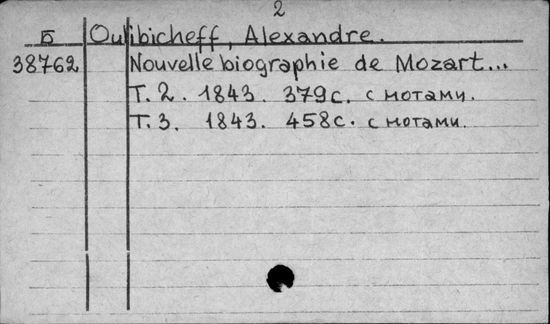 2
Б Oulibicheff, Alexandre.
38762 Nouvelle biographie de Mozart...
Т. 2. 1843. 379с. с нотами.
Т. 3. 1843. 458с. с нотами.